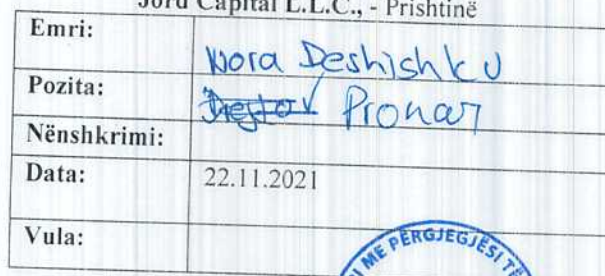 Jord Capital L.L.C., - Prishtinë
Emri: Nora Deshishku
Pozita: Drejtor Pronar
Nënshkrimi:
Data: 22.11.2021
Vula:
ME PËRGJEGJËSI TË